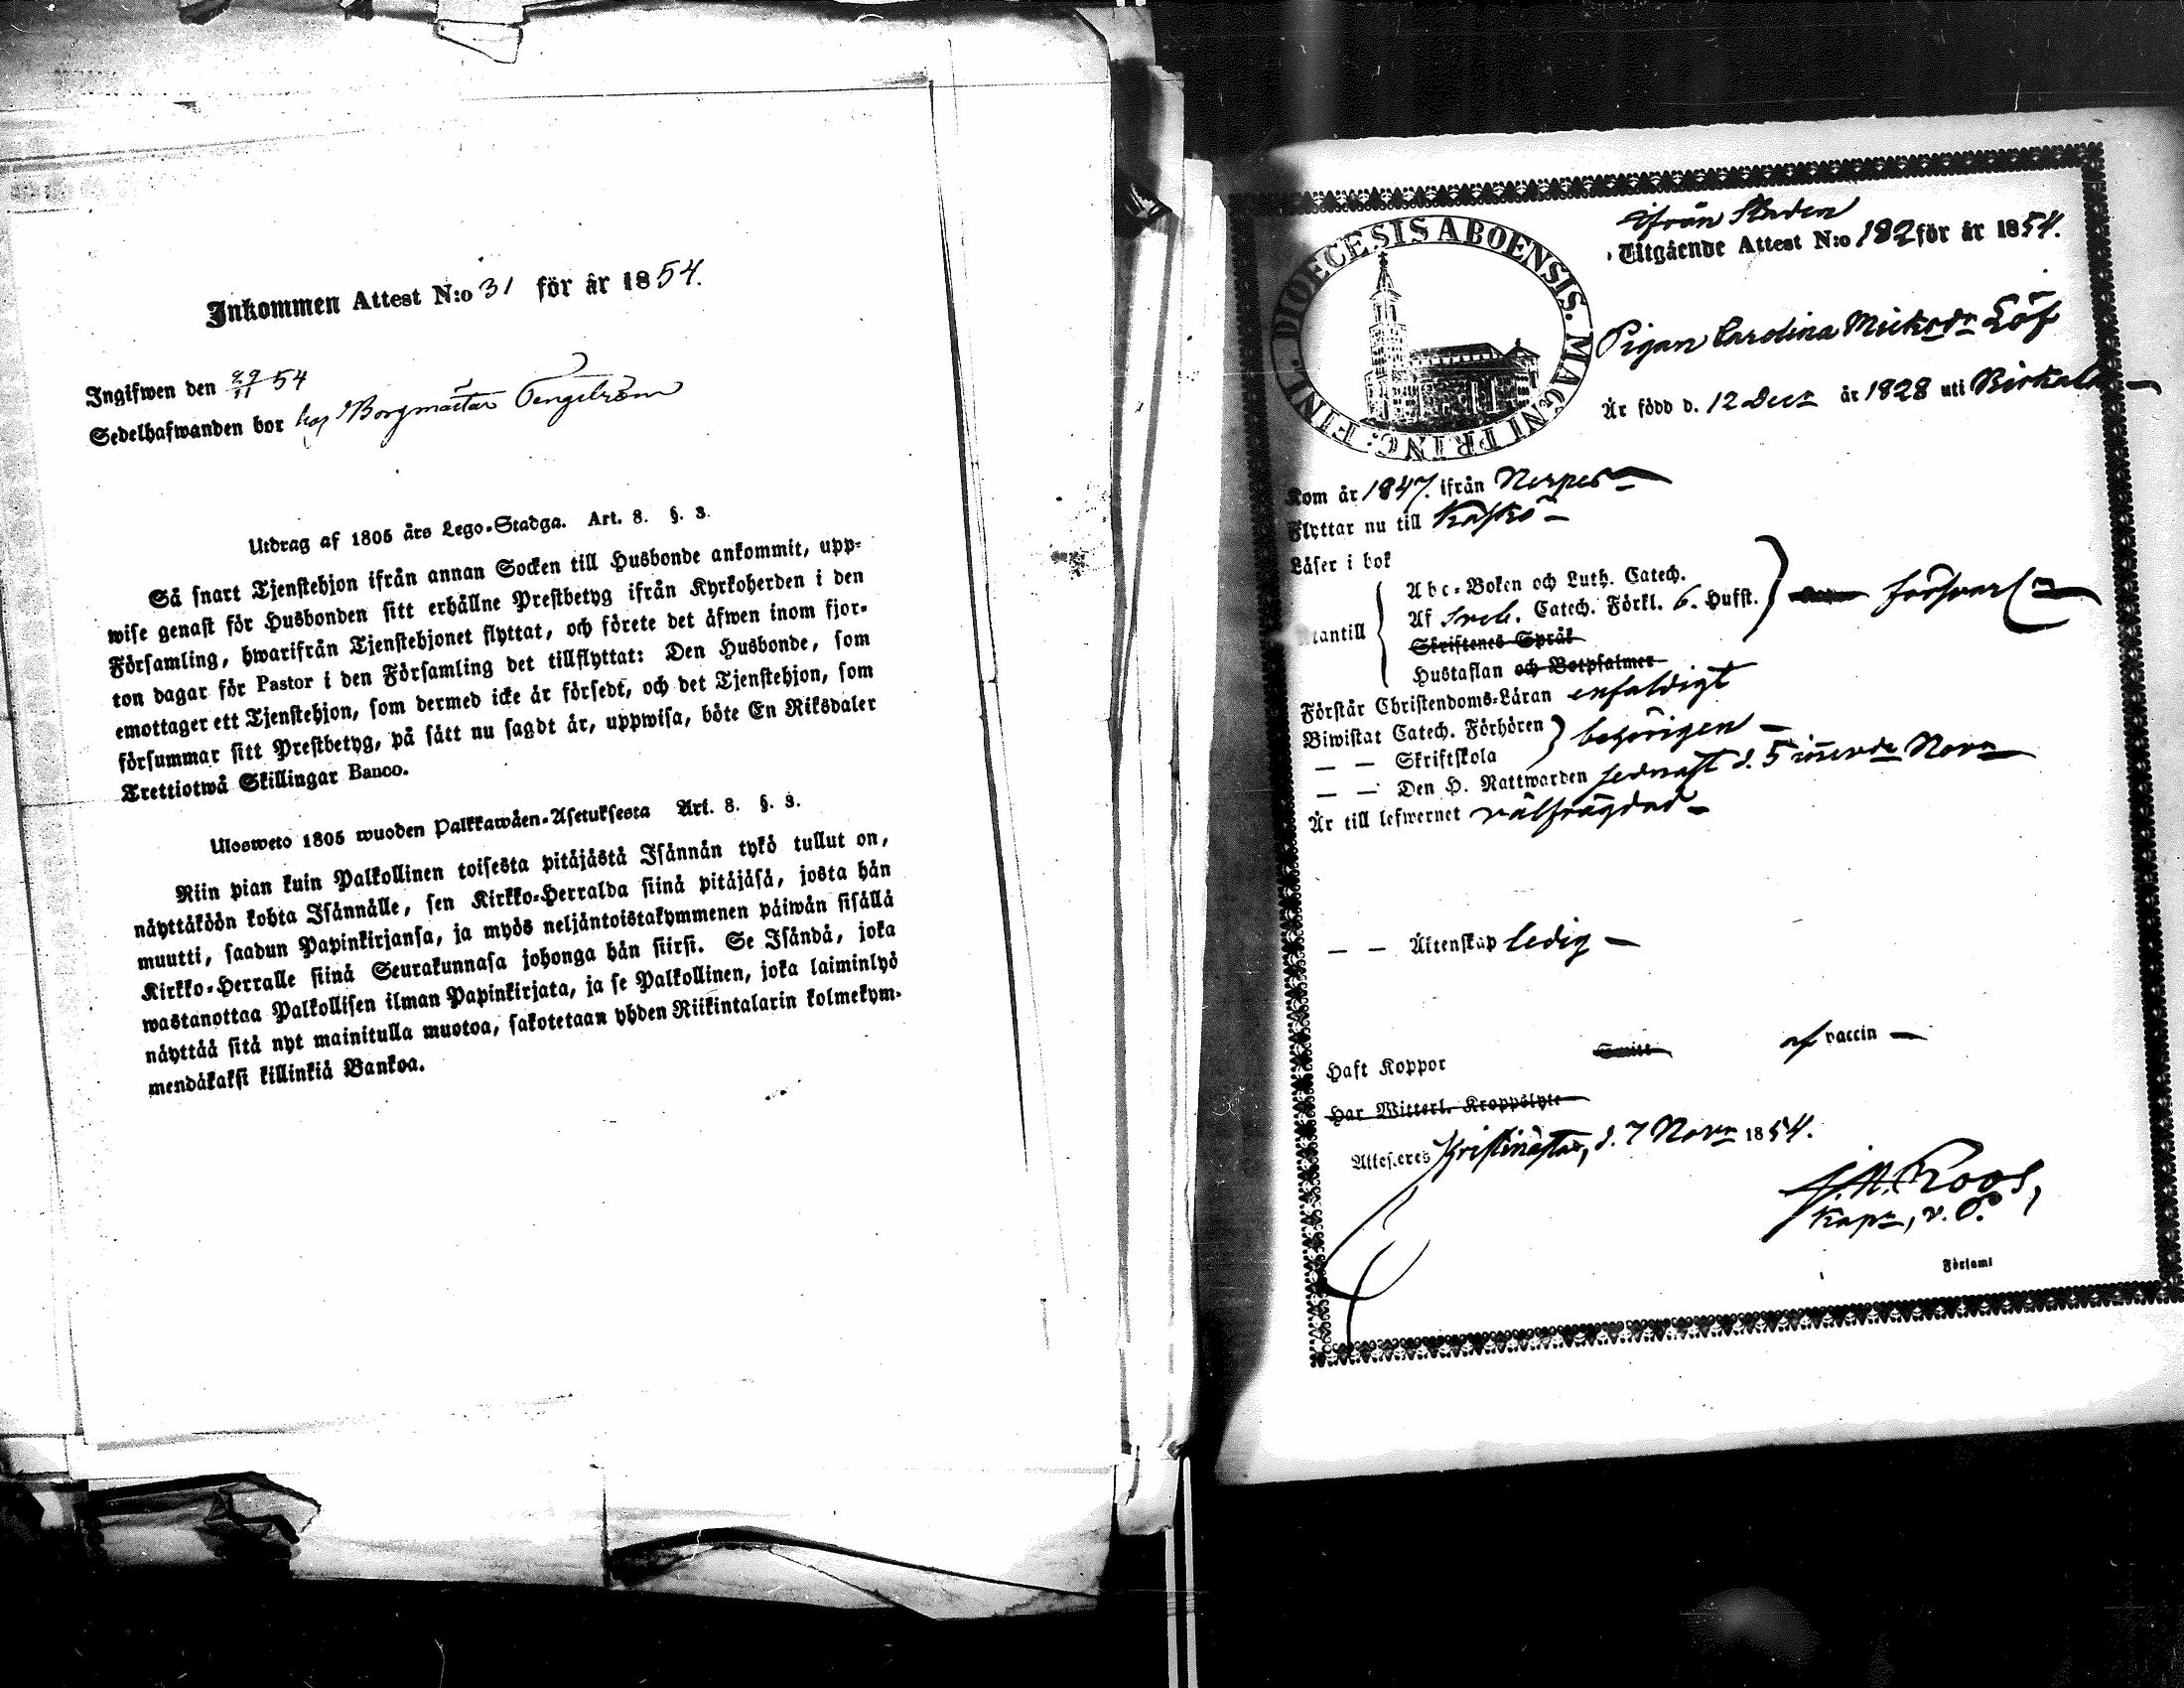 Inkommen Attest N:o 31 för år 1854.
Ingifwen den 29/11 54
Sedelhafwanden bor hos Borgmästar Tengström
Utdrag af 1805 års Lego-Stadga. Art. 8. §. 3.
Så snart Tjenstehjon ifrån annan Socken till Husbonde ankommit, upp-
wise genast för Husbonden sitt erhållne Prestbetyg ifrån Kyrkoherden i den
Församling, hwarifrån Tjenstehjonet flyttat, och förete det äfwen inom fjor-
ton dagar för Pastor i den Församling det tillflyttat: Den Husbonde, som
emottager ett Tjenstehjon, som dermed icke är försedt, och det Tjenstehjon, som
försummar sitt Prestbetyg, på sätt nu sagdt är, uppwisa, böte En Riksdaler
Trettiotwå Skillingar Banco.
Ulosweto 1805 wuoden Palkkawäen-Asetuksesta Art. 8. §. 3.
Niin pian kuin Palkollinen toisesta pitäjästä Isännän tykö tullut on,
näyttäköön kohta Isännälle, sen Kirkko-Herralda siinä pitäjäsä, josta hän
muutti, saadun Papinkirjansa, ja myös neljäntoistakymmenen päiwän sisällä
Kirkko-Herralle siinä Seurakunnasa johonga hän siirsi. Se Isändä, joka
wastanottaa Palkollisen ilman Papinkirjata, ja se Palkollinen, joka laiminlyö
näyttää sitä nyt mainitulla muotoa, sakotetaan yhden Riikintalarin kolmekym-
mendäkaksi killinkiä Bankoa.
DIOECESIS ABOENSIS. MAGNI PRINC: FINL.
ifrån Staden
Utgående Attest N:o 182 för år 1854.
Pigan Carolina Mickelsdr Löf
Är född d. 12 Decr år 1828 uti Birkala
Kom år 1847. ifrån Nerpes
Flyttar nu till Kaskö
Läser i bok
Abc-Boken och Luth. Catech.
Utantill Af Sveb. Catech. Förkl. 6. Hufst. försvarl
Skriftenes Språk
Hustaflan och Botpsalmer
Förstår Christendoms-Läran enfaldigt
Biwistat Catech. Förhören behörigen
— — Skriftskola
— — Den H. Nattwarden sednast d. 5 innevde Novr
Är till lefwernet välfrägdad
— — Äktenskap ledig
Haft Koppor Smitt af vaccin
Har Witterl. Kroppslyte
Attesteres Kristinestad, d. 7 Novr 1854.
J. A. Roos,
Kapn, v. P.
Församl